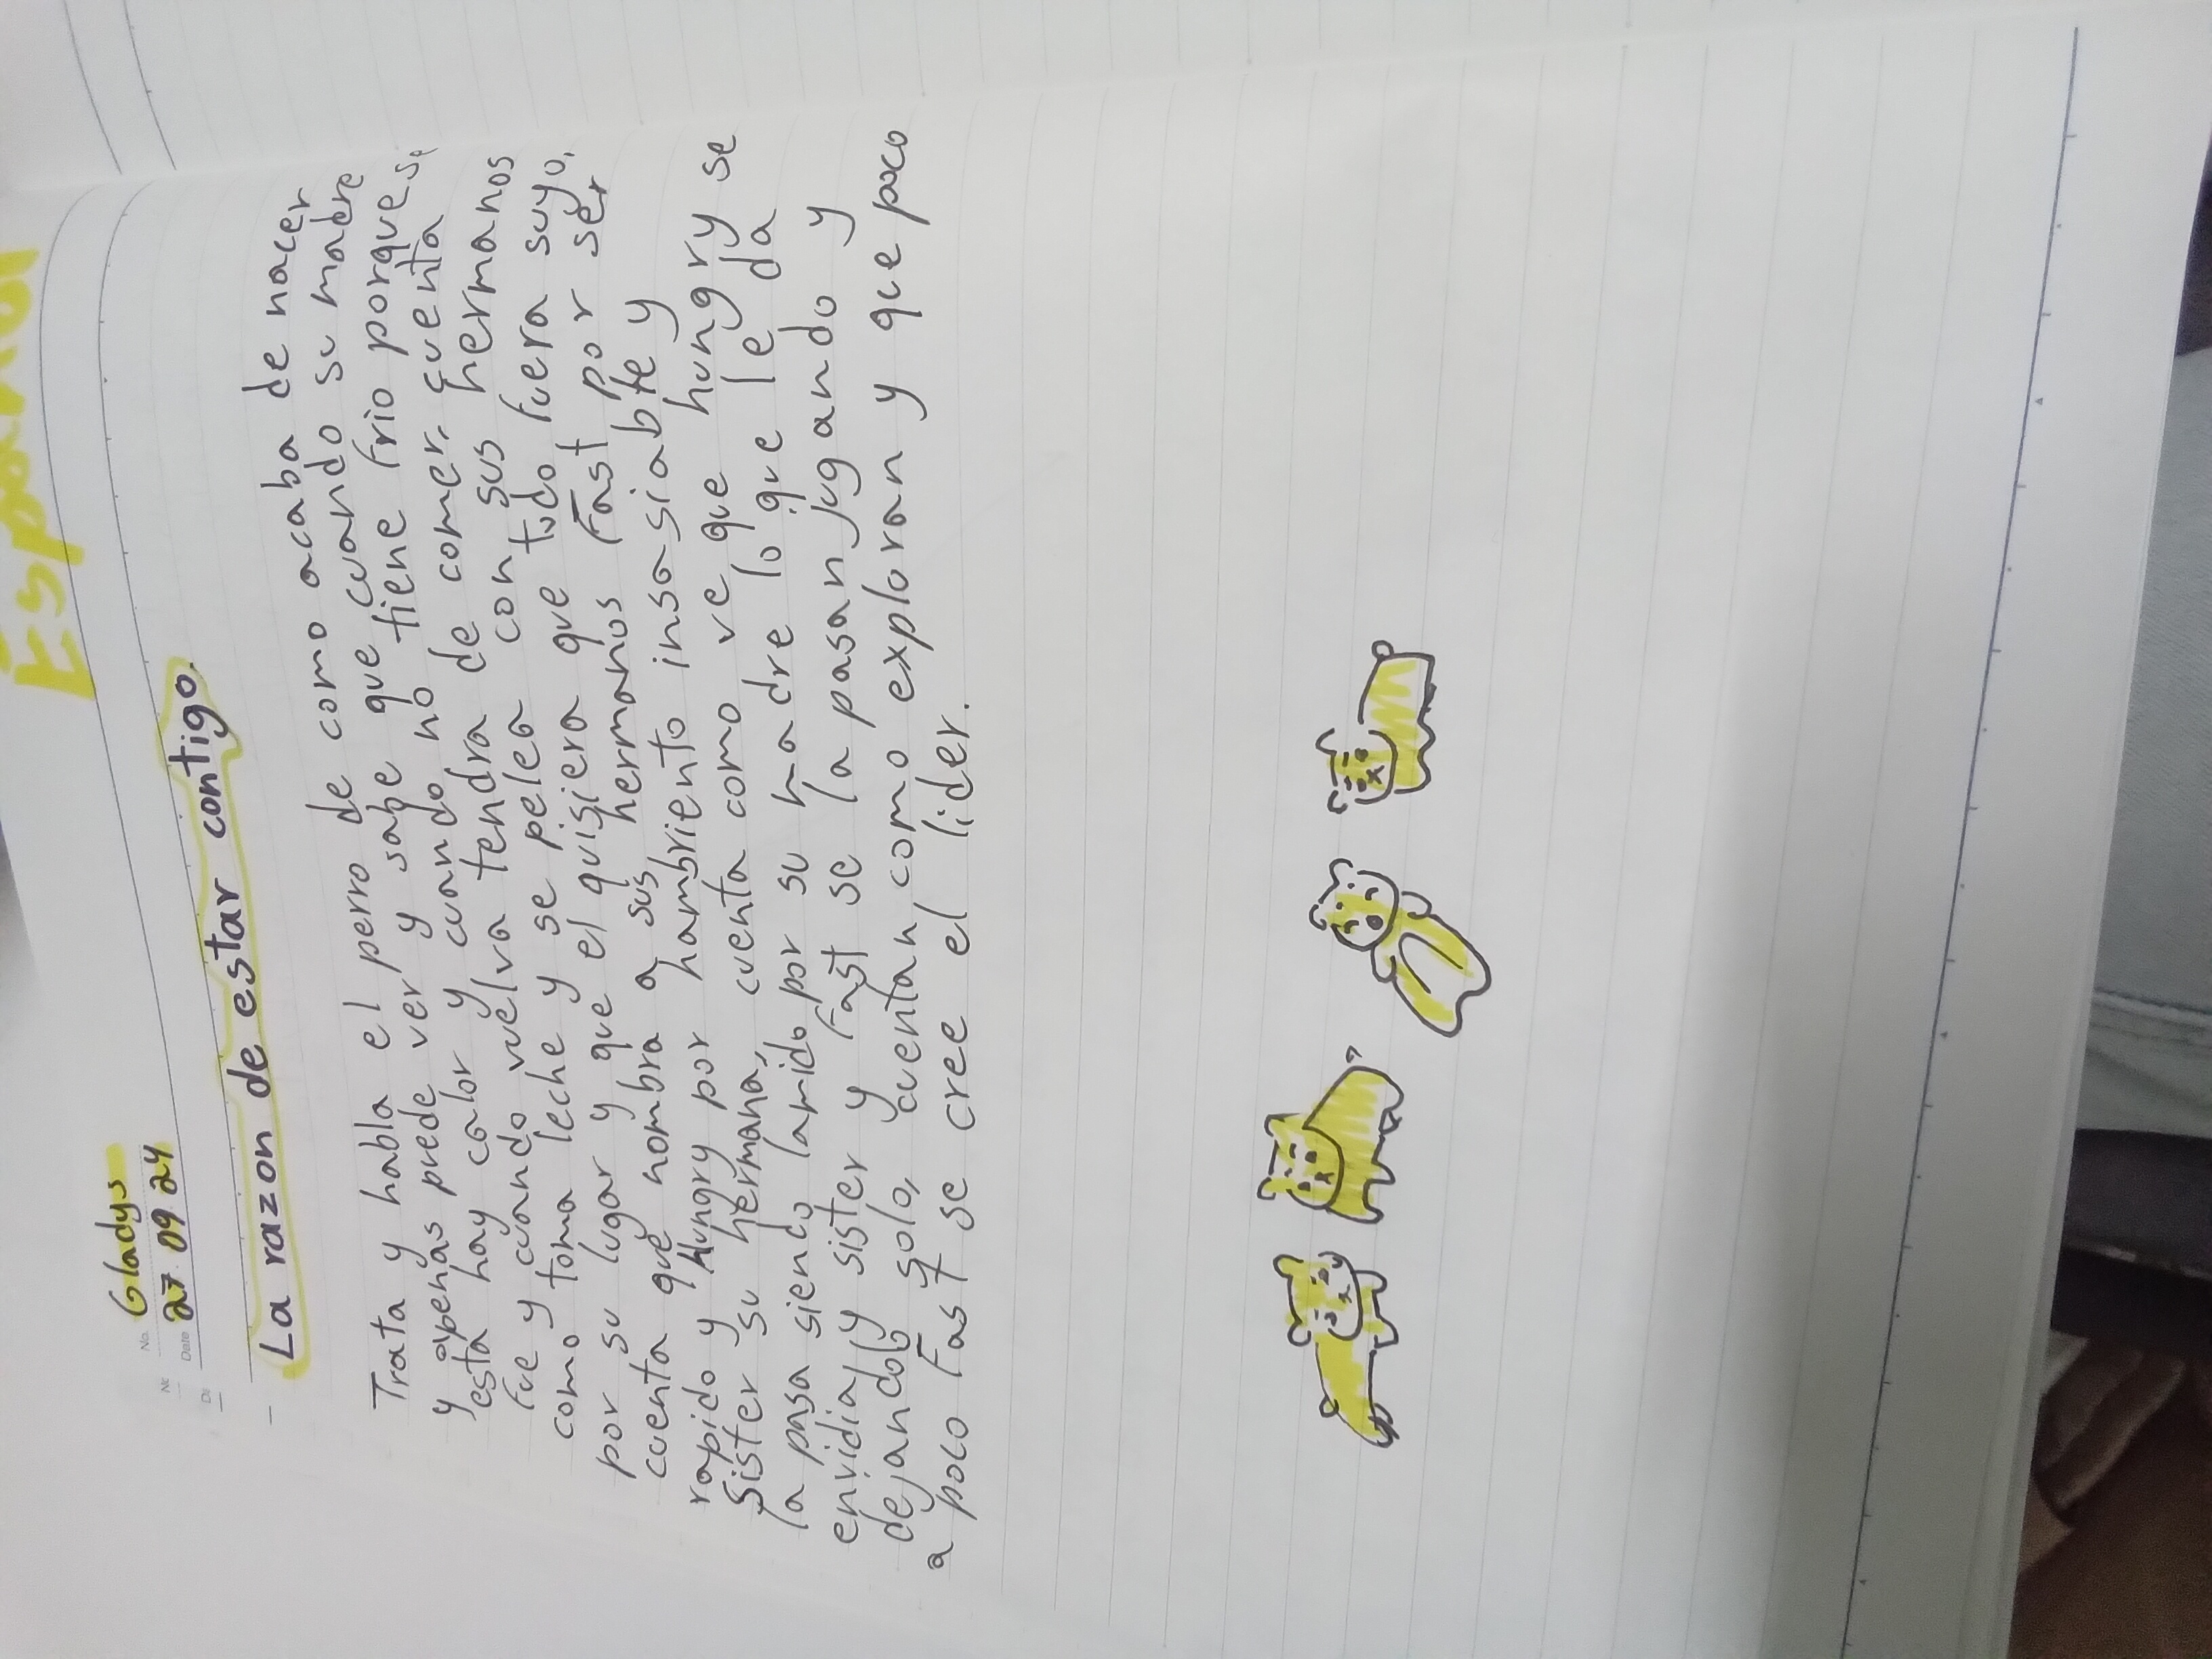 Español
No. Gladys
Date 27 09 24
La razon de estar contigo.
Trata y habla el perro de como acaba de nacer
y apenas puede ver y sabe que cuando su madre
esta hay calor y cuando no tiene frio porque se
fue y cuando vuelva tendra de comer, cuenta
como toma leche y se pelea con sus hermanos
por su lugar y que el quisiera que todo fuera suyo,
cuenta que nombra a sus hermanos Fast por ser
rapido y Hungry por hambriento insasiable y
Sister su hermana, cuenta como ve que hungry se
la pasa siendo lamido por su madre lo que le da
envidia y sister y Fast se la pasan jugando y
dejandolo solo, cuentan como exploran y que poco
a poco Fast se cree el lider.